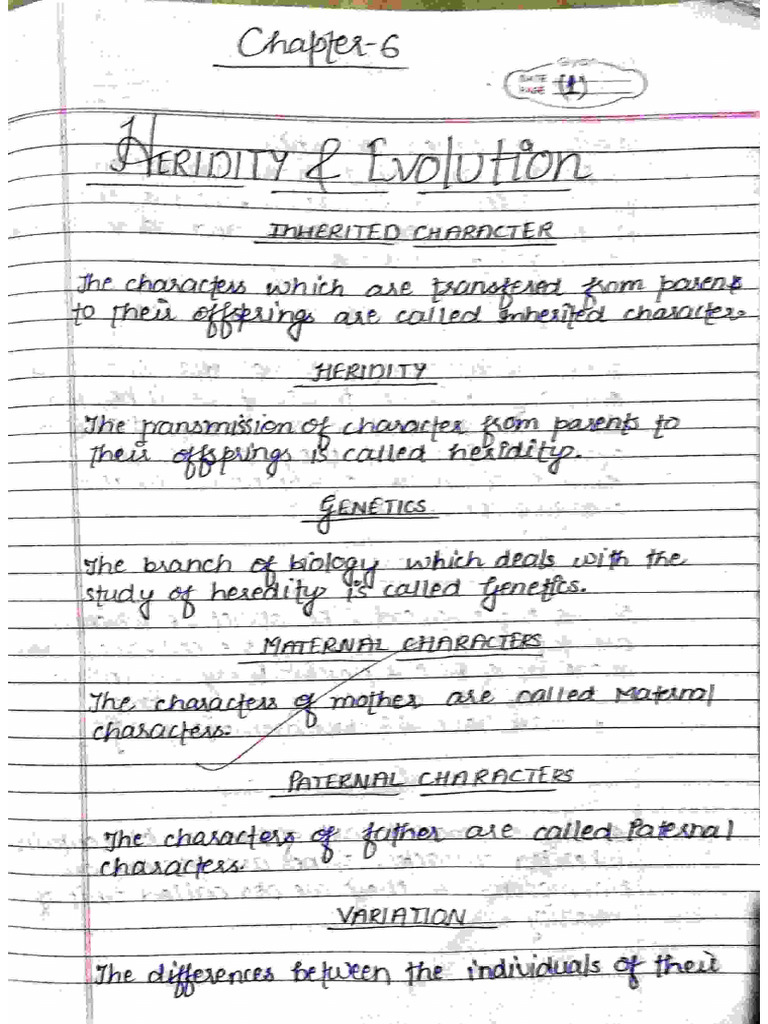 Chapter-6
DATE
PAGE (1)
HERIDITY & EVOLUTION
INHERITED CHARACTER
The characters which are transfered from parents
to their offsprings are called Inherited character.
HERIDITY
The transmission of character from parents to
their offsprings is called heridity.
GENETICS
The branch of biology which deals with the
study of heredity is called Genetics.
MATERNAL CHARACTERS
The characters of mother are called Maternal
characters.
PATERNAL CHARACTERS
The characters of father are called Paternal
characters.
VARIATION
The differences between the individuals of their